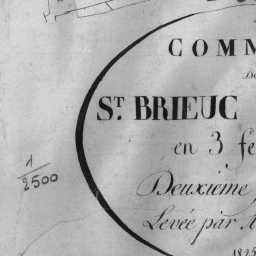 COMM
ST. BRIEUC
en 3 fe
1/2500
Deuxième
Levée par